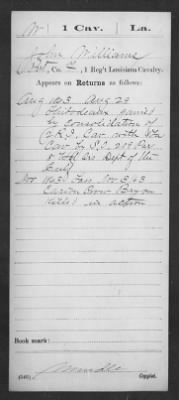 W 1 Cav. La.
John Williams
Co. 1 Reg't Louisiana Cavalry.
Appears on Returns as follows:
Aug 1863 Aug 29
Thibodeaux gained
by consolidation of
2 R.I. Cav. with 1 La
Cav. by S.O. 209 Par
8 Hdqrs Dept of the
Gulf
Nov 1863 Loss Nov 3/63
Carion Crow Bayou
Killed in action
Book mark:
(546) Copyist.